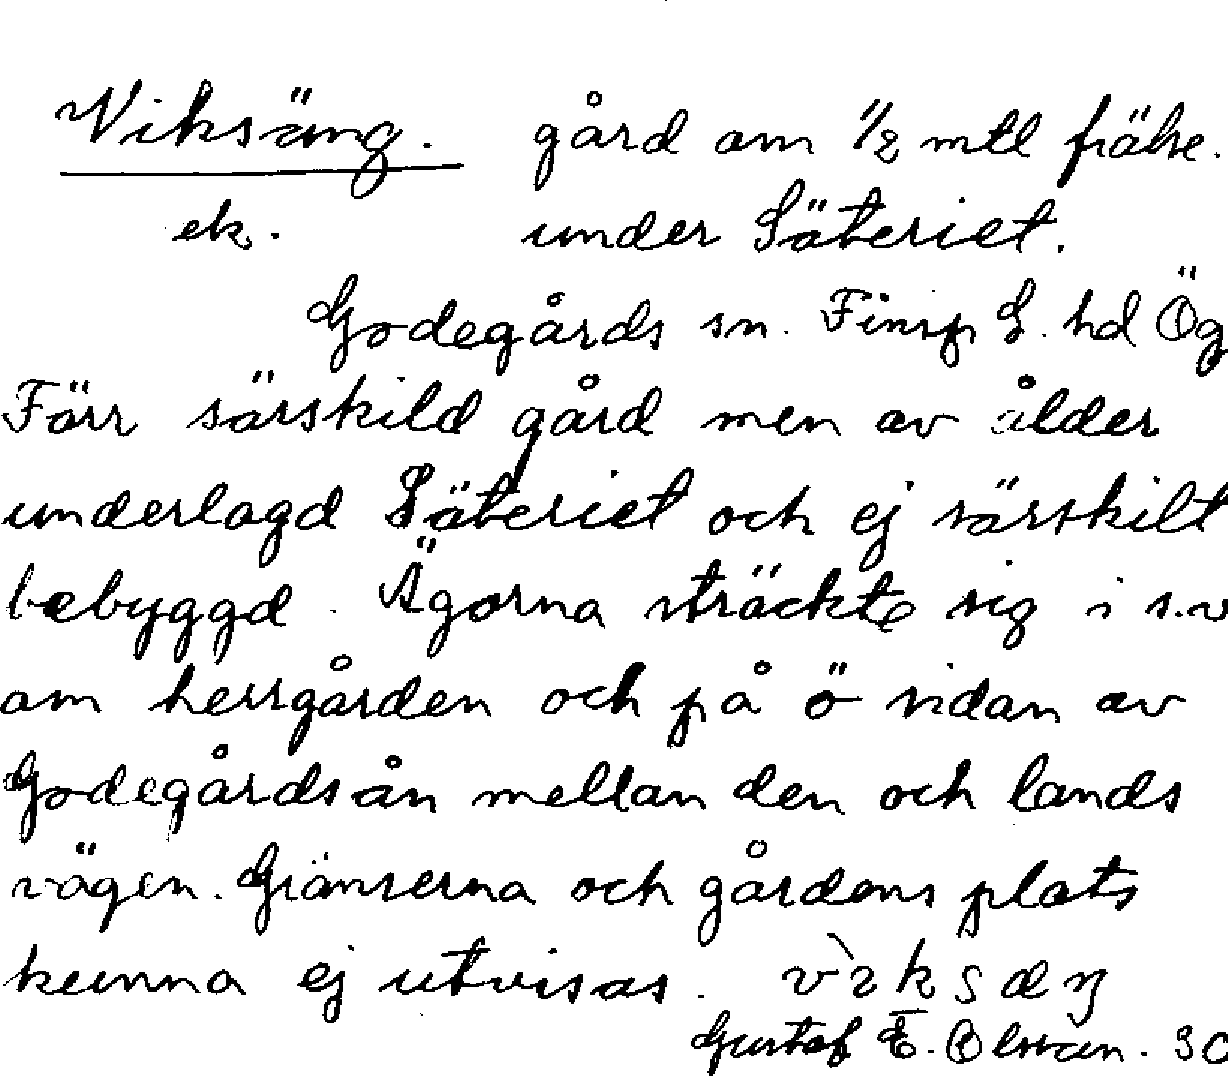 Viksäng. gård om 1/2 mtl frälse.
ek. under Säteriet.
Godegårds sn. Finsp L. hd Ög
Förr särskild gård men av ålder
underlagd Säteriet och ej särskilt
bebyggd. Ägorna sträckte sig i s.v
om herrgården och på ö sidan av
Godegårdsån mellan den och lands
vägen. Gränserna och gårdens plats
kunna ej utvisas.
Gustaf E. Olsson. SO